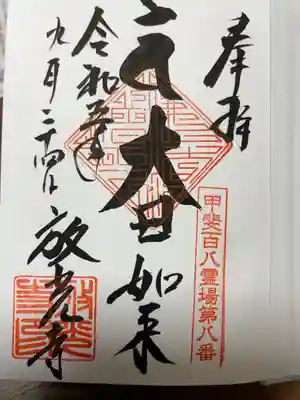 奉拝
甲斐百八霊場第八番
大日如来
放光寺
令和五年
九月二十四日